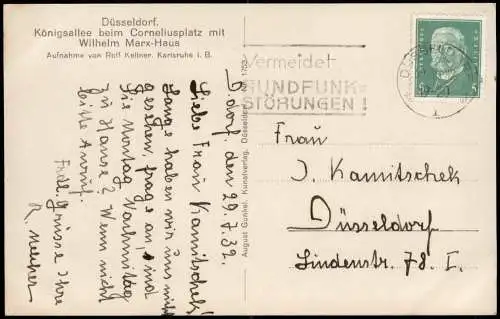 Düsseldorf.
Königsallee beim Corneliusplatz mit
Wilhelm Marx-Haus
Aufnahme von Rolf Kellner, Karlsruhe i. B.
D.dorf. den 29.7.32.
Liebe Frau Kamitschek!
Lange haben wir uns nicht
gesehen, frage an! sind
Sie Montag Nachmittag
zu Hause? Wenn nicht
bitte Anruf.
Frdl. Grüsse Ihre
R.
August Gunkel, Kunstverlag, Düsseldorf
Vermeidet
RUNDFUNK-
STÖRUNGEN!
Frau
J. Kamitschek
Düsseldorf
Lindenstr. 78. I.